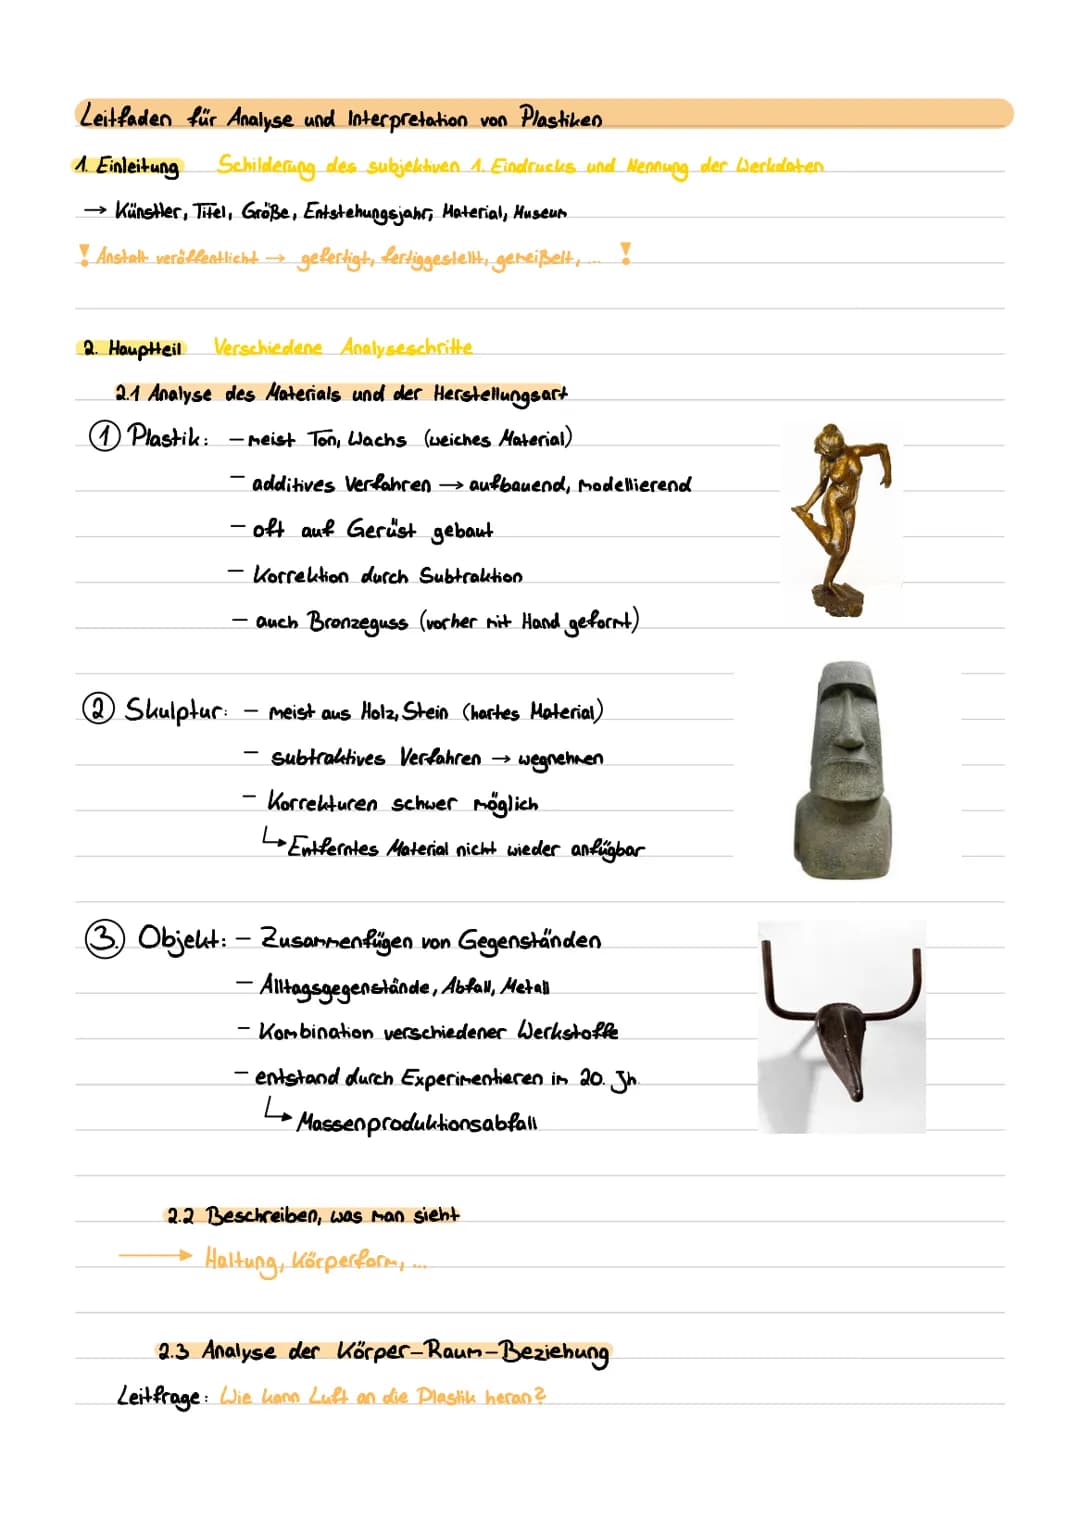 Leitfaden für Analyse und Interpretation von Plastiken
1. Einleitung Schilderung des subjektiven 1. Eindrucks und Nennung der Werkdaten
→ Künstler, Titel, Größe, Entstehungsjahr, Material, Museum
! Anstatt veröffentlicht → gefertigt, fertiggestellt, gemeißelt, ... !
2. Hauptteil Verschiedene Analyseschritte
2.1 Analyse des Materials und der Herstellungsart
① Plastik: - meist Ton, Wachs (weiches Material)
- additives Verfahren → aufbauend, modellierend
- oft auf Gerüst gebaut
- Korrektion durch Subtraktion
- auch Bronzeguss (vorher mit Hand geformt)
② Skulptur: - meist aus Holz, Stein (hartes Material)
- subtraktives Verfahren → wegnehmen
- Korrekturen schwer möglich
↳ Entferntes Material nicht wieder anfügbar
③. Objekt: - Zusammenfügen von Gegenständen
- Alltagsgegenstände, Abfall, Metall
- Kombination verschiedener Werkstoffe
- entstand durch Experimentieren im 20. Jh.
↳ Massenproduktionsabfall
2.2 Beschreiben, was man sieht
→ Haltung, Körperform, ...
2.3 Analyse der Körper-Raum-Beziehung
Leitfrage: Wie kann Luft an die Plastik heran?